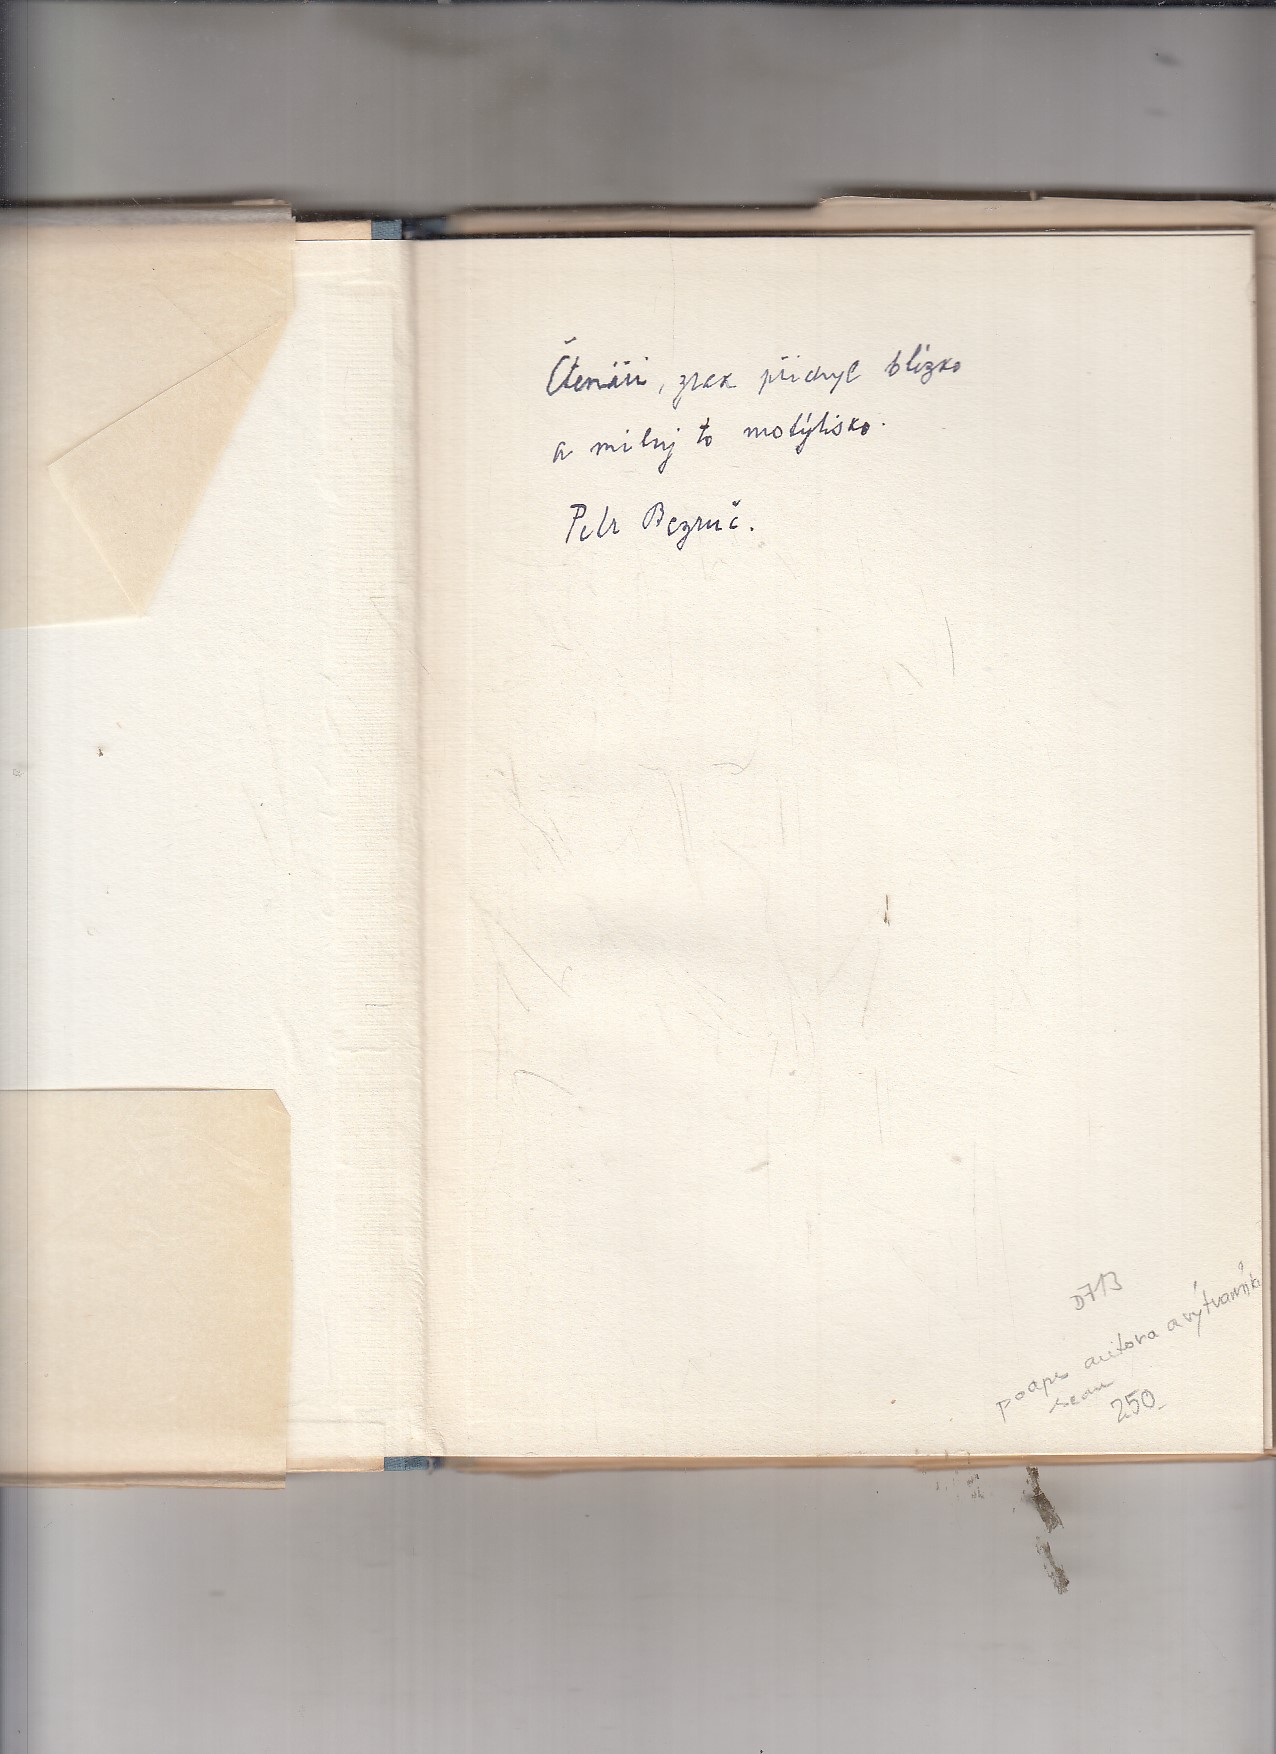 Čtenáři, zrak přichyl blízko
a miluj to motýlisko.
Petr Bezruč.
D713
podpis autora a výtvarníka
250-